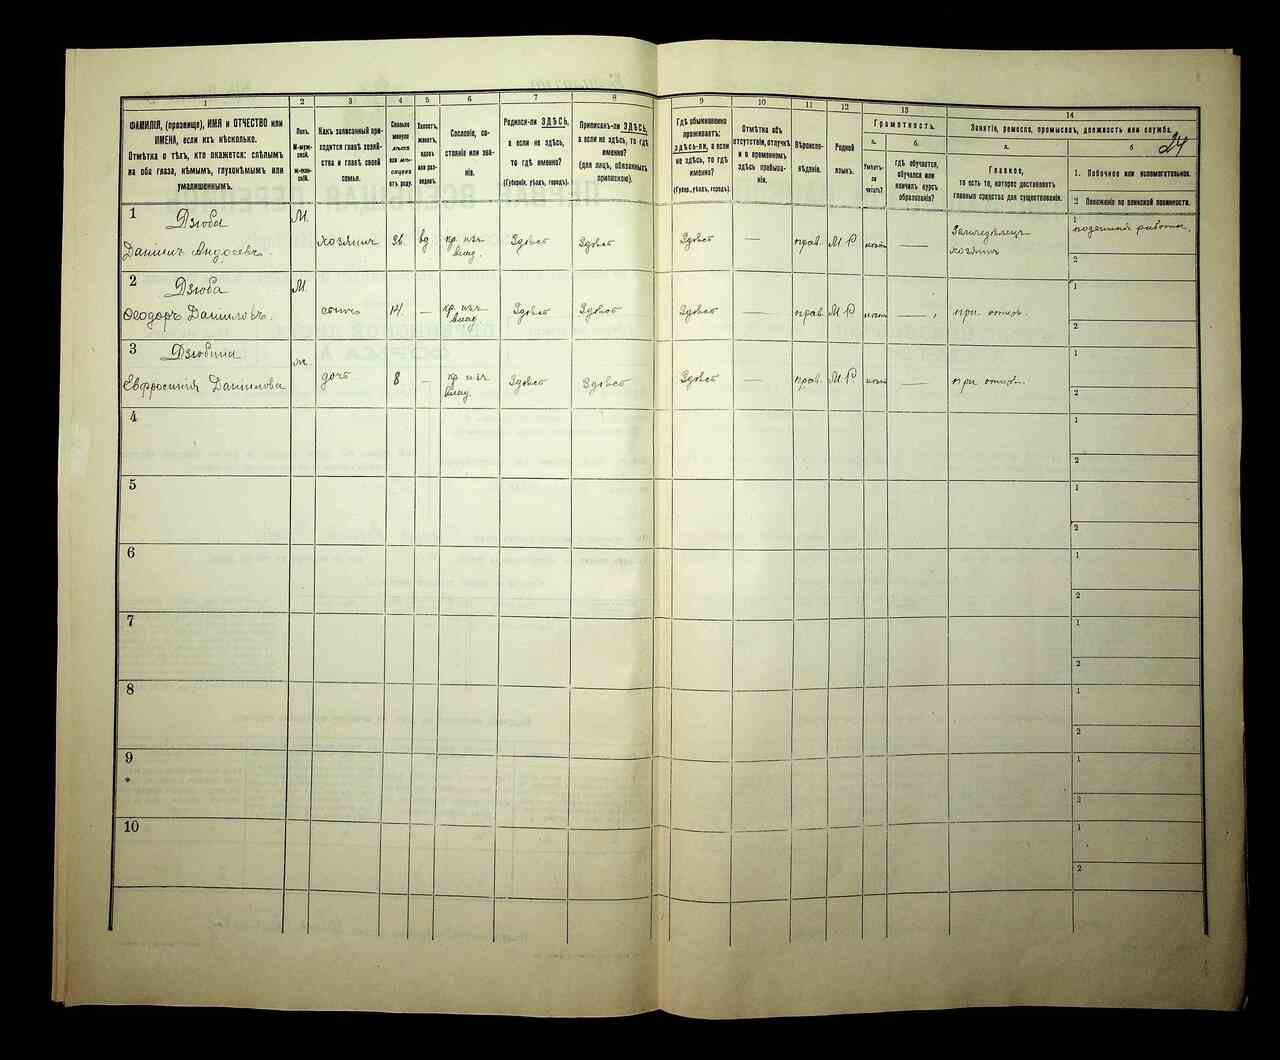 1 2 3 4 5 6 7 8 9 10 11 12 13 14
ФАМИЛІЯ, (прозвище), ИМЯ и ОТЧЕСТВО или
ИМЕНА, если ихъ нѣсколько.
Отмѣтка о тѣхъ, кто окажется: слѣпымъ
на оба глаза, нѣмымъ, глухонѣмымъ или
умалишеннымъ.
Полъ.
М-муж-
ской.
Ж-жен-
скій.
Какъ записанный при-
ходится главѣ хозяй-
ства и главѣ своей
семьи.
Сколько
минуло
лѣтъ
или мѣ-
сяцевъ
отъ роду.
Холостъ,
женатъ,
вдовъ
или раз-
веденъ.
Сословіе, со-
стояніе или зва-
ніе.
Родился-ли ЗДѢСЬ,
а если не здѣсь,
то гдѣ именно?
(Губернія, уѣздъ, городъ).
Приписанъ-ли ЗДѢСЬ,
а если не здѣсь, то гдѣ
именно?
(для лицъ, обязанныхъ
припискою).
Гдѣ обыкновенно
проживаетъ:
здѣсь-ли, а если
не здѣсь, то гдѣ
именно?
(Губер., уѣздъ, городъ).
Отмѣтка объ
отсутствіи, отлучкѣ
и о временномъ
здѣсь пребыва-
ніи.
Вѣроиспо-
вѣданіе.
Родной
языкъ.
Грамотность.
а.
Умѣетъ-
ли
читать?
б.
Гдѣ обучается,
обучался или
кончилъ курсъ
образованія?
Занятіе, ремесло, промыселъ, должность или служба.
24
а.
Главное,
то есть то, которое доставляетъ
главныя средства для существованія.
б
1. Побочное или вспомогательное.
2 Положеніе по воинской повинности.
1 Дзюба
Даніилъ М. хозяинъ 36 вд кр. изъ влад. Здѣсь Здѣсь Здѣсь — прав. М Р — Земледѣлецъ хозяинъ 1 2
2 Дзюба
Ѳеодоръ Даниловъ. М. сынъ 14 — кр. изъ влад Здѣсь Здѣсь Здѣсь — прав М Р — при отцѣ. 1 2
3 Дзюбина
Евфросинія Данилова ж. дочь 8 — кр изъ влад. Здѣсь Здѣсь Здѣсь — прав. М.Р — при отцѣ. 1 2
4 1 2
5 1 2
6 1 2
7 1 2
8 1 2
9 1 2
10 1 2